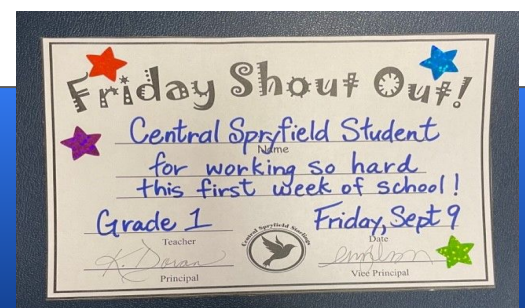 Friday Shout Out!
Central Spryfield Student
Name
for working so hard
this first week of school!
Grade 1 Friday, Sept 9
Teacher Date
Central Spryfield Starlings
K. Doran
Principal Vice Principal